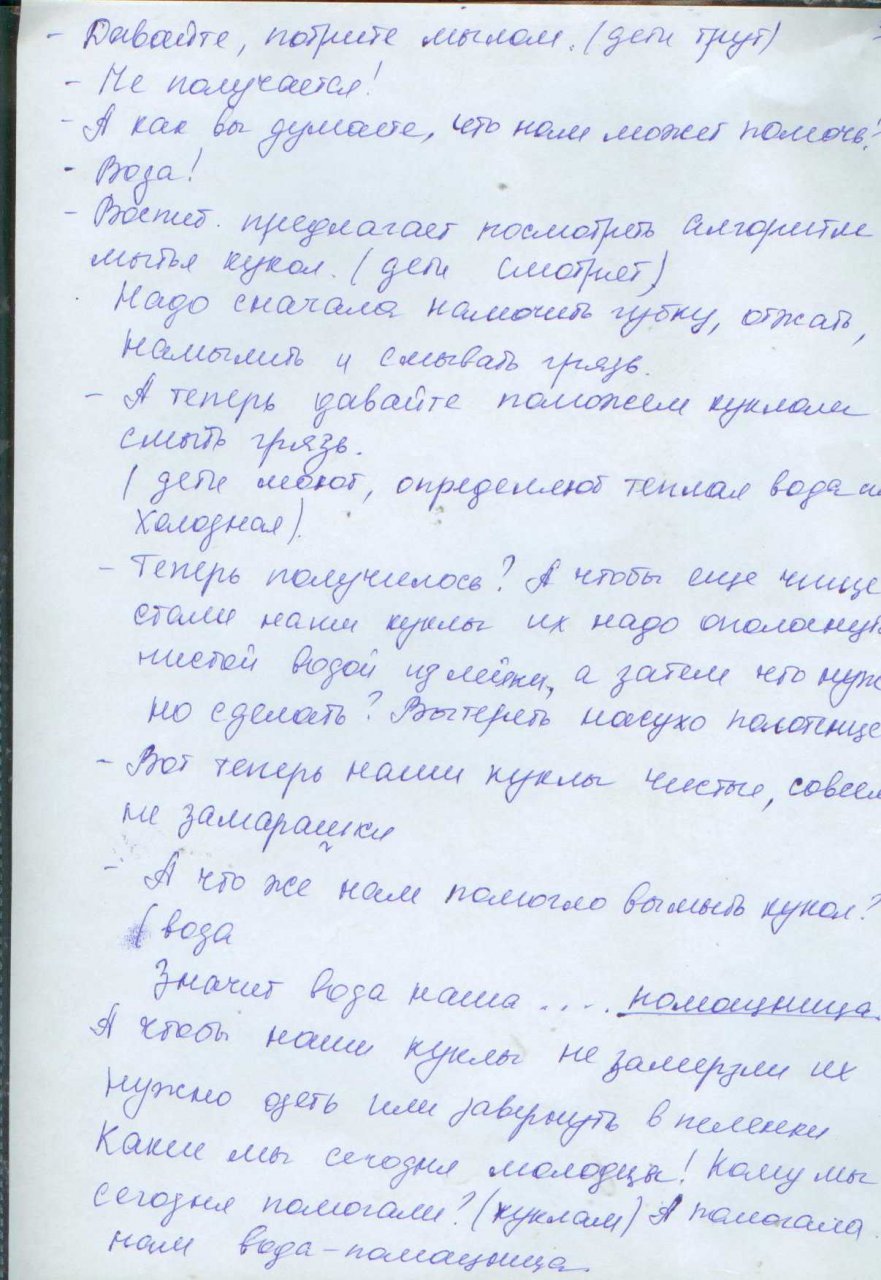 - Давайте, потрите мылом. (дети трут)
- Не получается!
- А как вы думаете, что нам может помочь?
- Вода!
- Воспит. предлагает посмотреть алгоритм
мытья кукол. (дети смотрят)
Надо сначала намочить губку, отжать,
намылить и смывать грязь.
- А теперь давайте поможем куклам
смыть грязь.
(дети моют, определяют теплая вода и
холодная).
- Теперь получилось? А чтобы еще чище
стали наши куклы их надо ополоснуть
чистой водой из лейки, а затем что нуж
но сделать? Вытереть насухо полотенце
- Вот теперь наши куклы чистые, совсем
не замарашки
- А что же нам помогло вымыть кукол?
(вода
Значит вода наша .... помощница.
А чтобы наши куклы не замерзли их
нужно одеть или завернуть в пеленки
Какие мы сегодня молодцы! Кому мы
сегодня помогали? (куклам) А помогала
нам вода-помощница